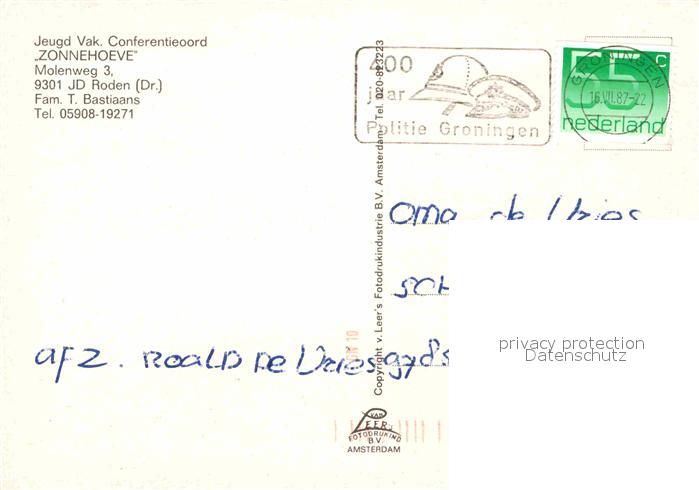 Jeugd Vak. Conferentieoord
„ZONNEHOEVE"
Molenweg 3,
9301 JD Roden (Dr.)
Fam. T. Bastiaans
Tel. 05908-19271
400
jaar
Politie Groningen
GRONINGEN
16.VII.87-22
55 c
nederland
Copyright v. Leer's Fotodrukindustrie B.V. Amsterdam Tel. 020-823223
Oma de Vries
SCH
afz. Roald De Vries
privacy protection
Datenschutz
VAN
LEER'S
FOTODRUKIND
B.V.
AMSTERDAM